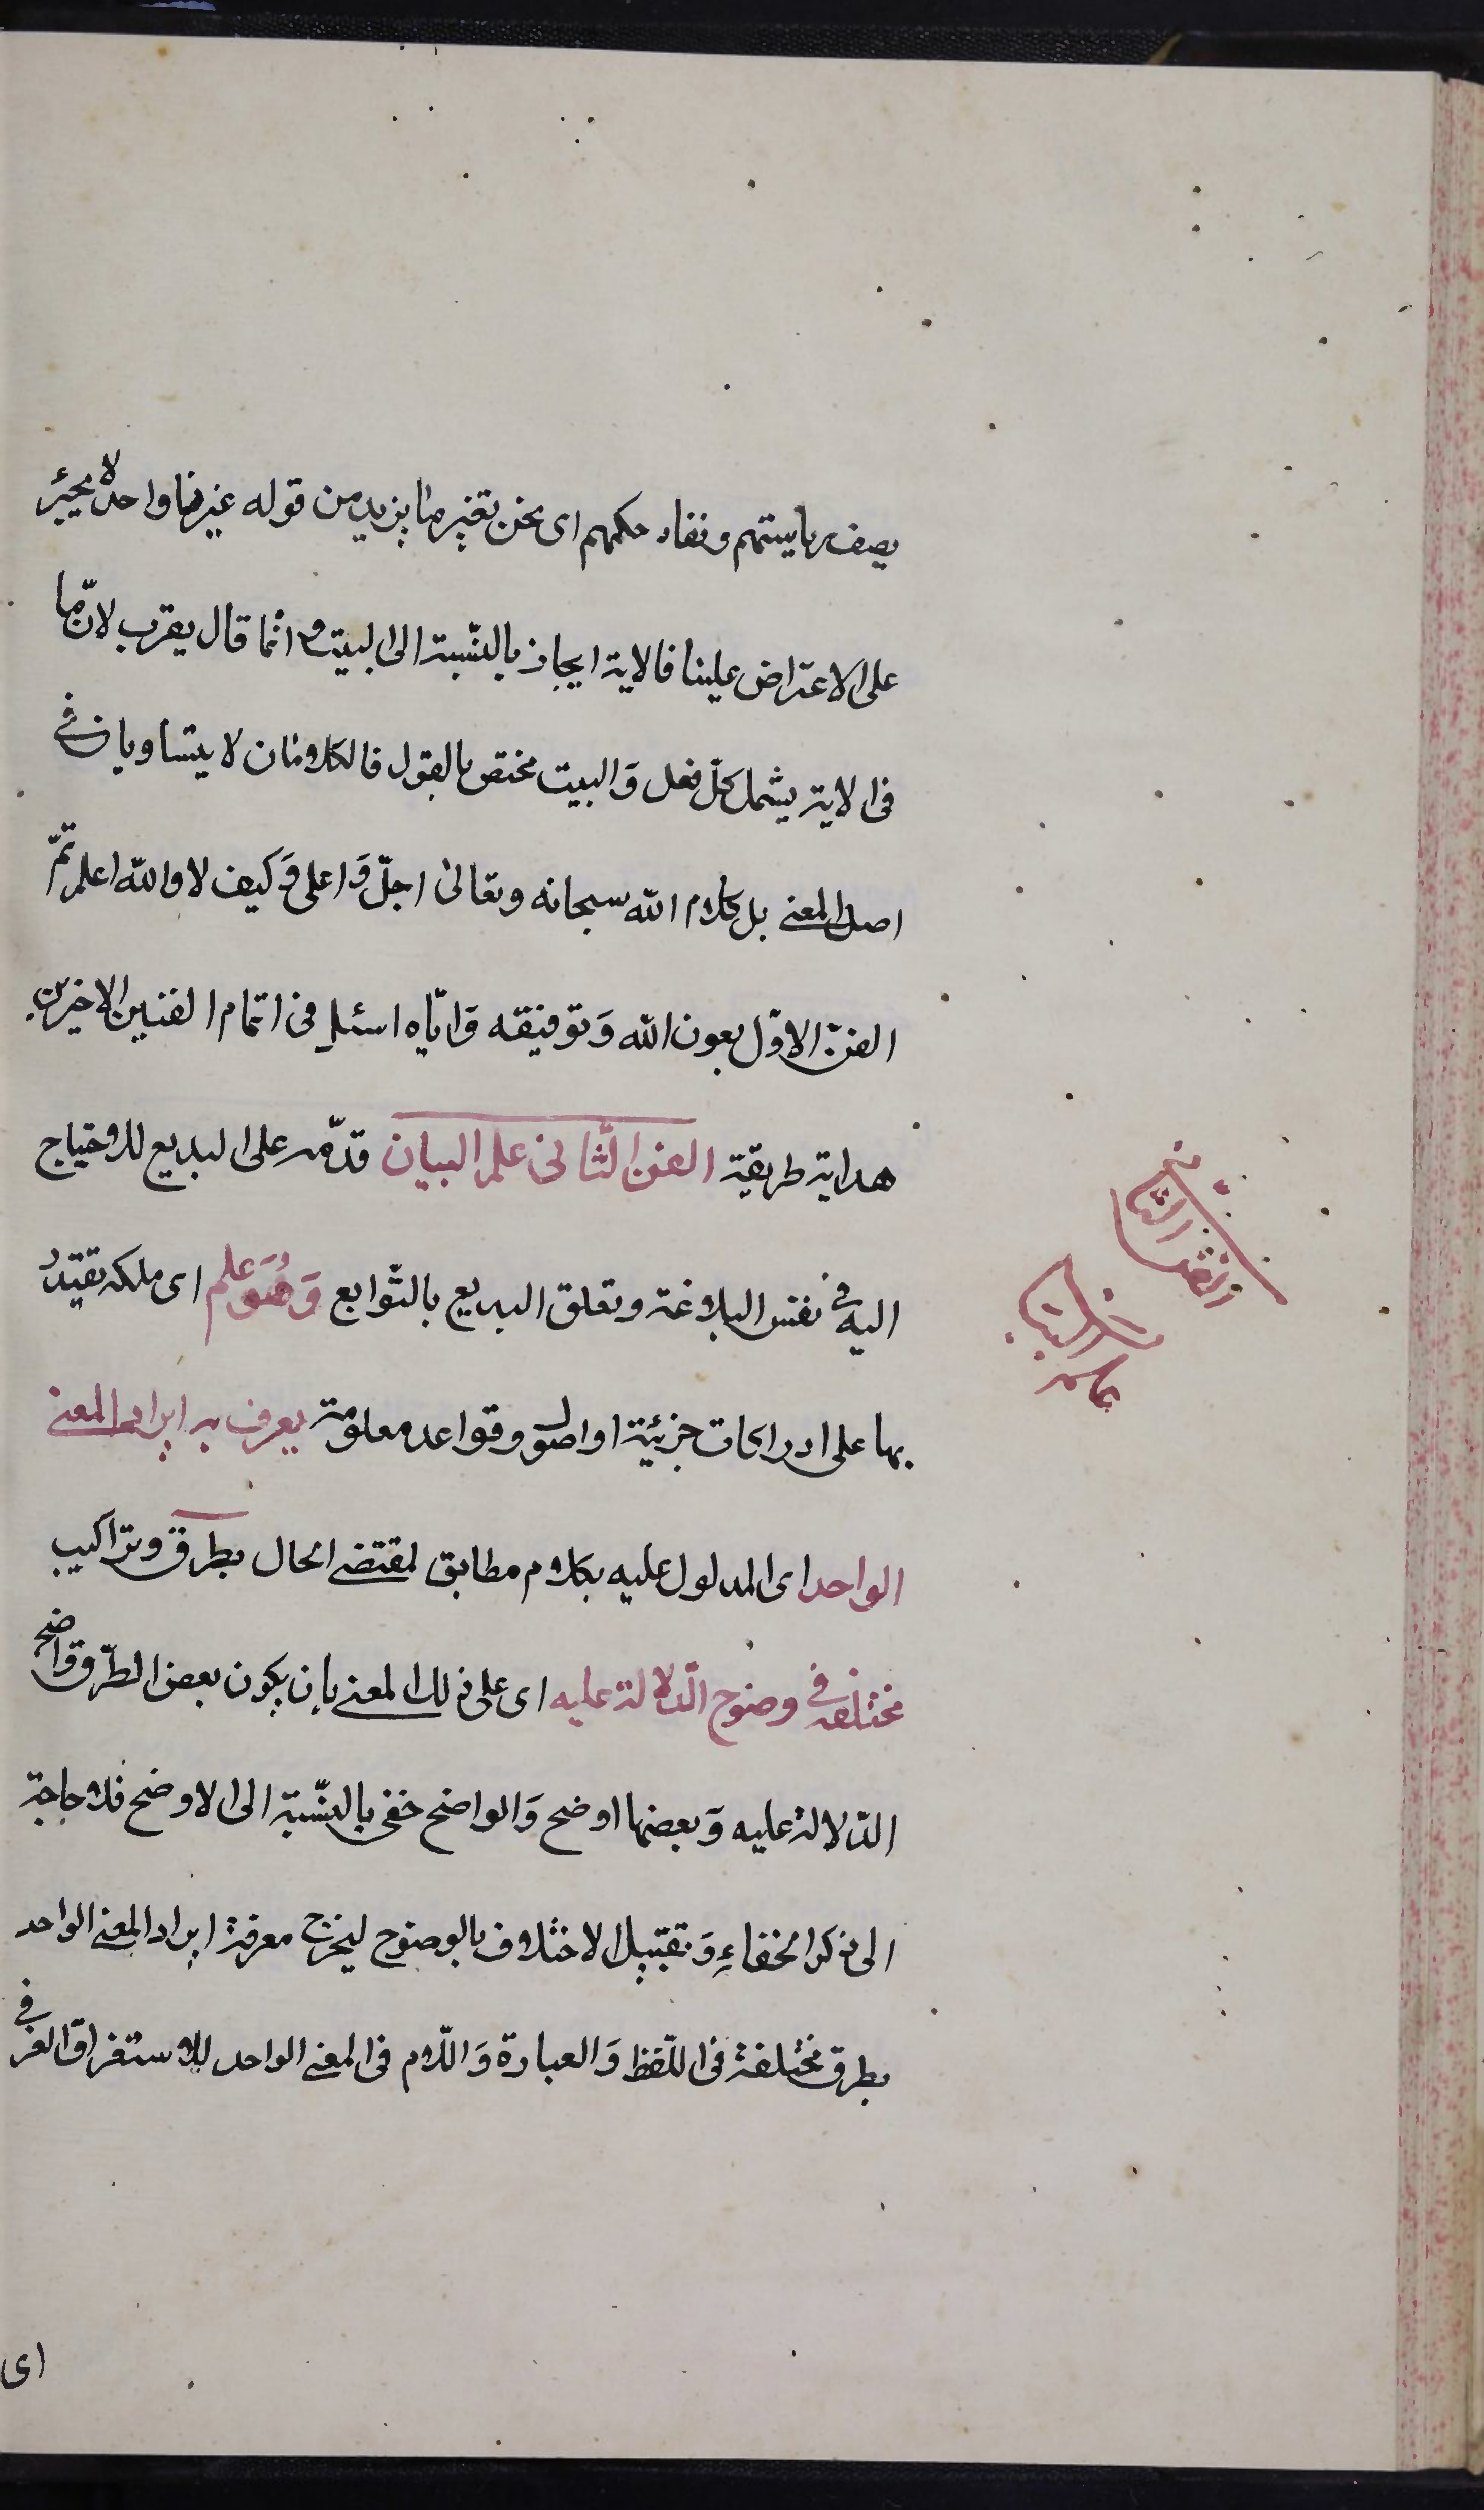 يصف رياستهم ونفاد حكمهم اى نحن نغير ما يريد من قوله غيرنا واحد لا يجتر
على الاعتراض علينا فالاية ايجاز بالنّسبة الى البيت وانّما قال يقرب لانّ ما
فى الاية يشمل كلّ فعل وَالبيت مختص بالقول فالكلامان لا يتساويان فى
اصل المعنى بل كلام الله سبحانه وتعالى اجلّ وَاعلى وَكيف لا والله اعلم تمّ
الفنّ الاوّل بعون الله وَتوفيقه وَايّاه اسئل فى اتمام الفنين الاخيرين
هداية طريقة الفن الثّانى علم البيان قدّمه على البديع للاحتياج
اليه فى نفس البلاغة وتعلق البديع بالتّوابع وَهُوَ علم اى ملكه يقتدر
بها على ادراكات جزئية او اصول وقواعد معلومة يعرف به ايراد المعنى
الواحد اى المدلول عليه بكلام مطابق لمقتضى الحال بطرق وتراكيب
مختلفة فى وضوح الدّلالة عليه اى على ذلك المعنى بان يكون بعض الطّرق واضح
الدّلالة عليه وَبعضها اوضح وَالواضح خفى بالنّسبة الى الاوضح فلا حاجة
الى ذكر الخفاءِ وَتقييد الاختلاف بالوضوح ليخرج معرفة ايراد المعنى الواحد
بطرق مختلفة فى اللّفظ وَالعبارة وَاللّام فى المعنى الواحد للاستغراق العرفى
اى
الفن الثانى
علم البيان